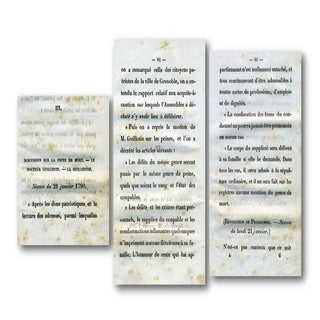 III.
DOCUMENTS SUR LA PEINE DE MORT. — LE
DOCTEUR GUILLOTIN. — LA GUILLOTINE.
Séance du 21 janvier 1790.
« Après les dons patriotiques et la
lecture des adresses, parmi lesquelles
on a remarqué celle des citoyens pa-
triotes de la ville de Grenoble, on a en-
tendu le rapport relatif aux arquis-
cation sur lesquels l'Assemblée a décla-
ré n'y avoir lieu à délibérer.
» Puis on a repris la motion de
M. Guillotin sur les peines, et l'on a
décrété les articles suivants :
» Les délits du même genre seront
punis par le même genre de peine,
quels que soient le rang et l'état des
coupables.
» Les délits et les crimes étant per-
sonnels, le supplice du coupable et les
condamnations infamantes quelconques
n'impriment aucune flétrissure à sa fa-
mille. L'honneur de ceux qui lui ap-
— 81 —
partiennent n'est nullement entaché, et
tous continueront d'être admissibles à
toutes sortes de professions, d'emplois
et de dignités.
» La confiscation des biens des con-
damnés ne pourra jamais être prononcée
en aucun cas.
» Le corps du supplicié sera délivré
à sa famille si elle le demande. Dans
tous les cas, il sera admis à la sépul-
ture ordinaire, et il ne sera fait sur les
registres aucune mention du genre de
mort.
Séance
du lundi 21 janvier.)
N'est-ce pas curieux que ce soit
6